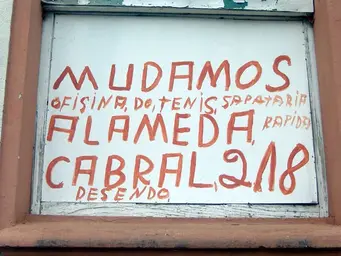 MUDAMOS
OFISINA, DO, TENIS, SAPATARIA
RAPIDA
ALAMEDA,
CABRAL, 218
DESENDO,